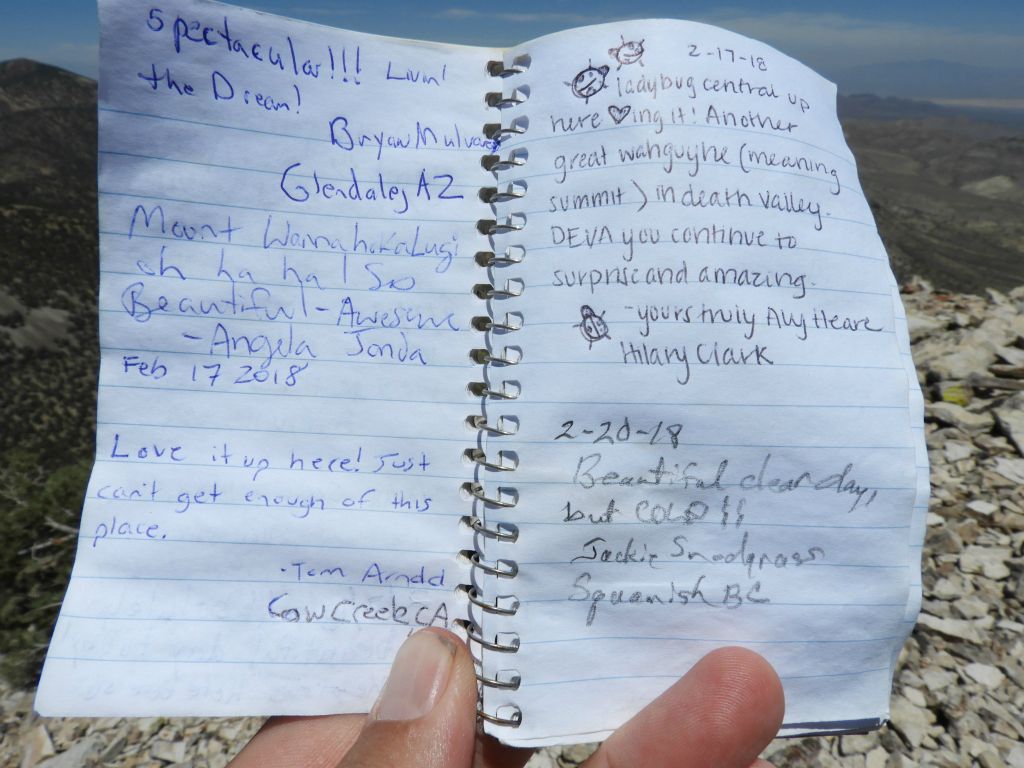 Spectacular!!! Livin'
the Dream!
Bryan
Glendale, AZ
Mount WannahakaLugi
oh ha ha! So
Beautiful - Awesome
- Angela Jonda
Feb 17 2018
Love it up here! Just
can't get enough of this
place.
- Tom Arnold
Cow Creek, CA
2-17-18
ladybug central up
here ♡ing it! Another
great wahguyhe (meaning
summit) in death valley.
DEVA you continue to
surprise and amazing.
- yours truly
Hilary Clark
2-20-18
Beautiful clear day,
but COLD!!
Jackie Snodgrass
Squamish BC